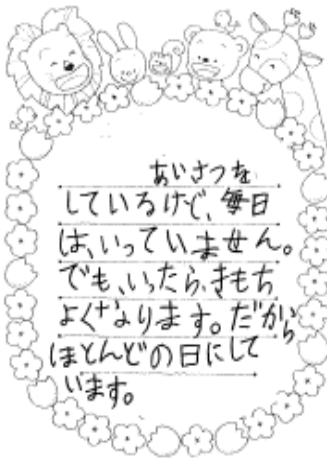 あいさつを
しているけど、毎日
は、いっていません。
でも、いったら、きもち
よくなります。だから
ほとんどの日にして
います。